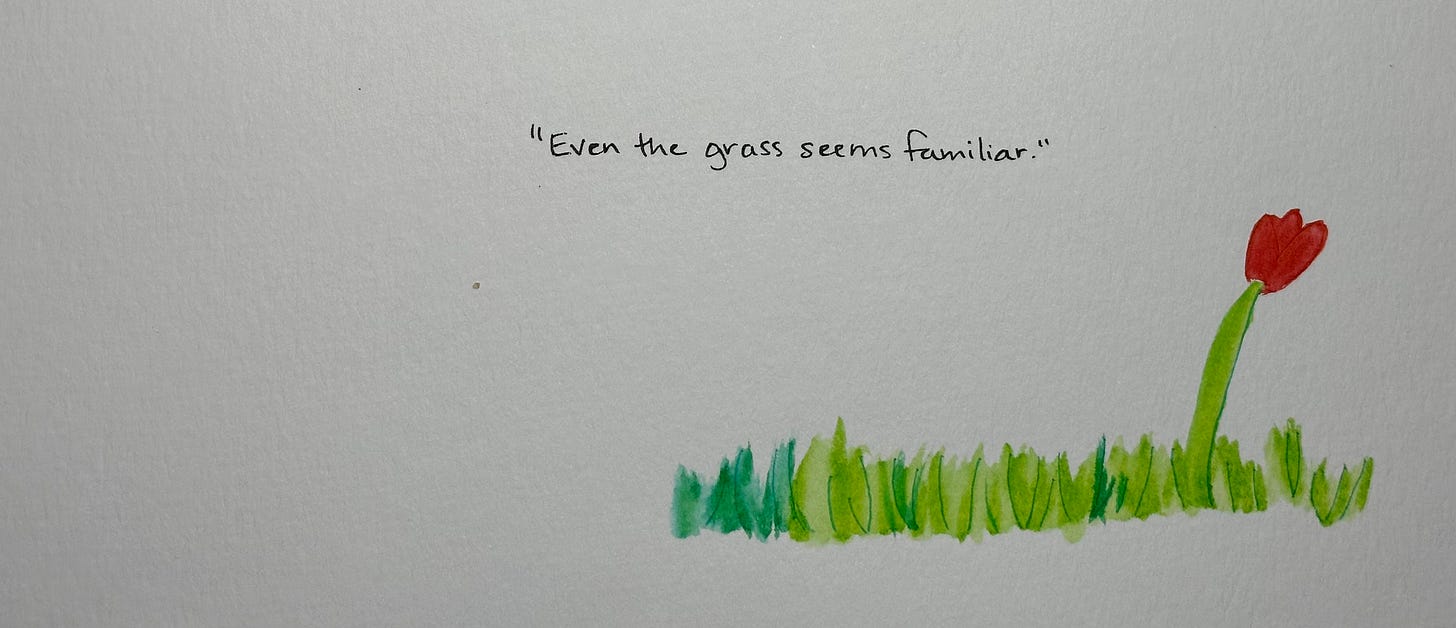 "Even the grass seems familiar."